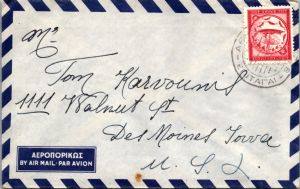 Mr
Tom Karvounis
1111 Walnut St
Des Moines Iowa
U. S. A.
ΑΕΡΟΠΟΡΙΚΩΣ
BY AIR MAIL - PAR AVION